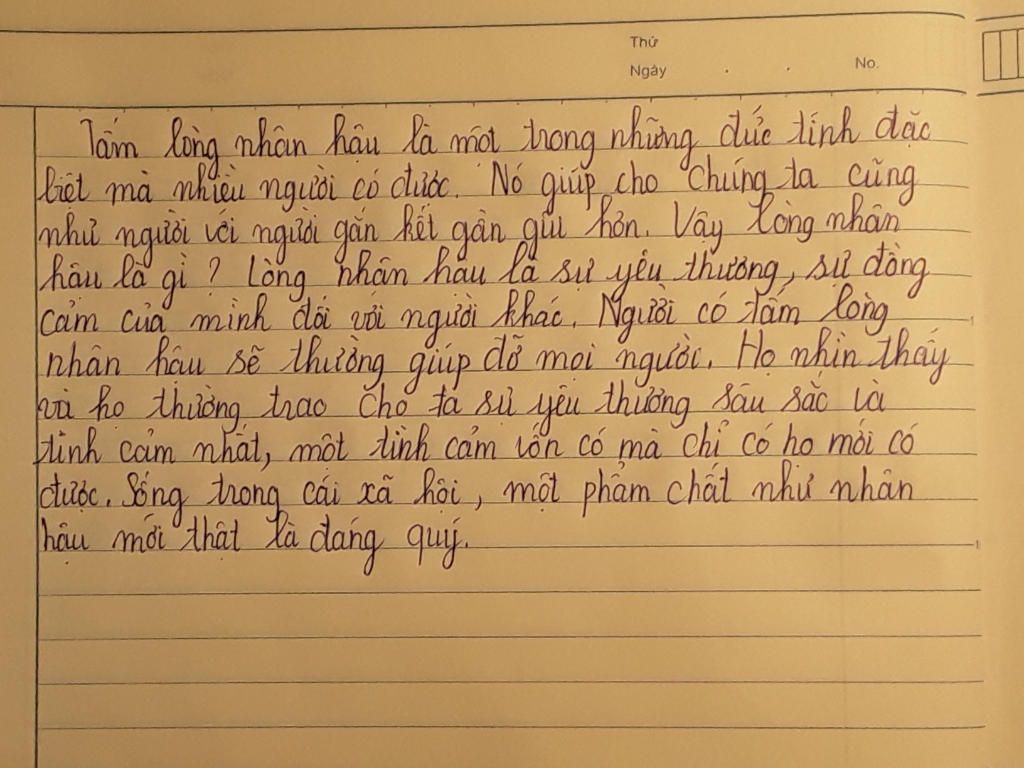 Thứ
Ngày . . No.
Tấm lòng nhân hậu là một trong những đức tính đặc
biệt mà nhiều người có được. Nó giúp cho chúng ta cũng
như người với người gắn kết gần gũi hơn. Vậy lòng nhân
hậu là gì ? Lòng nhân hậu là sự yêu thương, sự đồng
cảm của mình đối với người khác. Người có tấm lòng
nhân hậu sẽ thường giúp đỡ mọi người. Họ nhìn thấy
và họ thường trao cho ta sự yêu thương sâu sắc và
tình cảm nhất, một tình cảm vốn có mà chỉ có họ mới có
được. Sống trong cái xã hội, một phẩm chất như nhân
hậu mới thật là đáng quý.